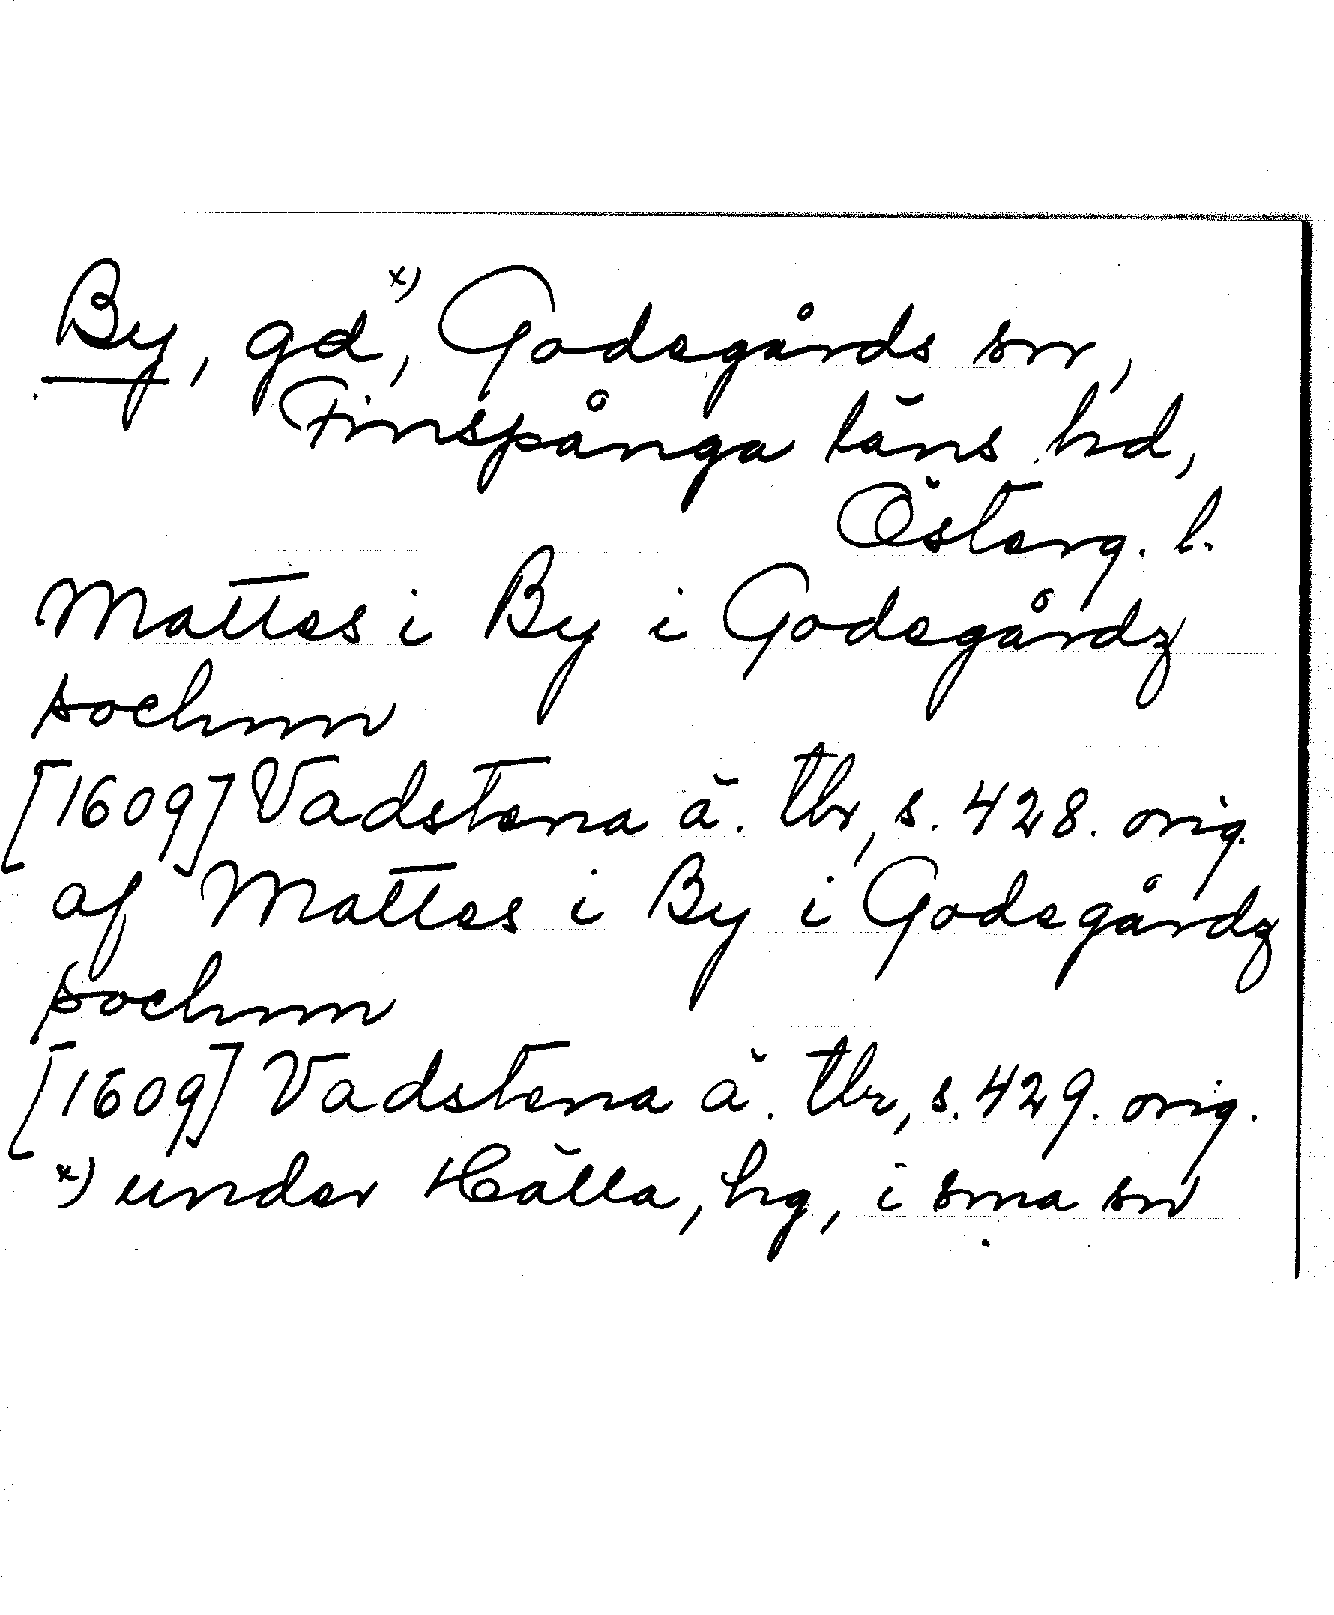 By, gd x), Godegårds sn,
Finspånga läns hd,
Österg. l.
Mattes i By i Godegårdz
sochnn
[1609] Vadstena ä. tbr, s. 428. orig.
af Mattes i By i Godegårdz
sochnn
[1609] Vadstena ä. tbr, s. 429. orig.
x) under Hälla, hg, i sma sn